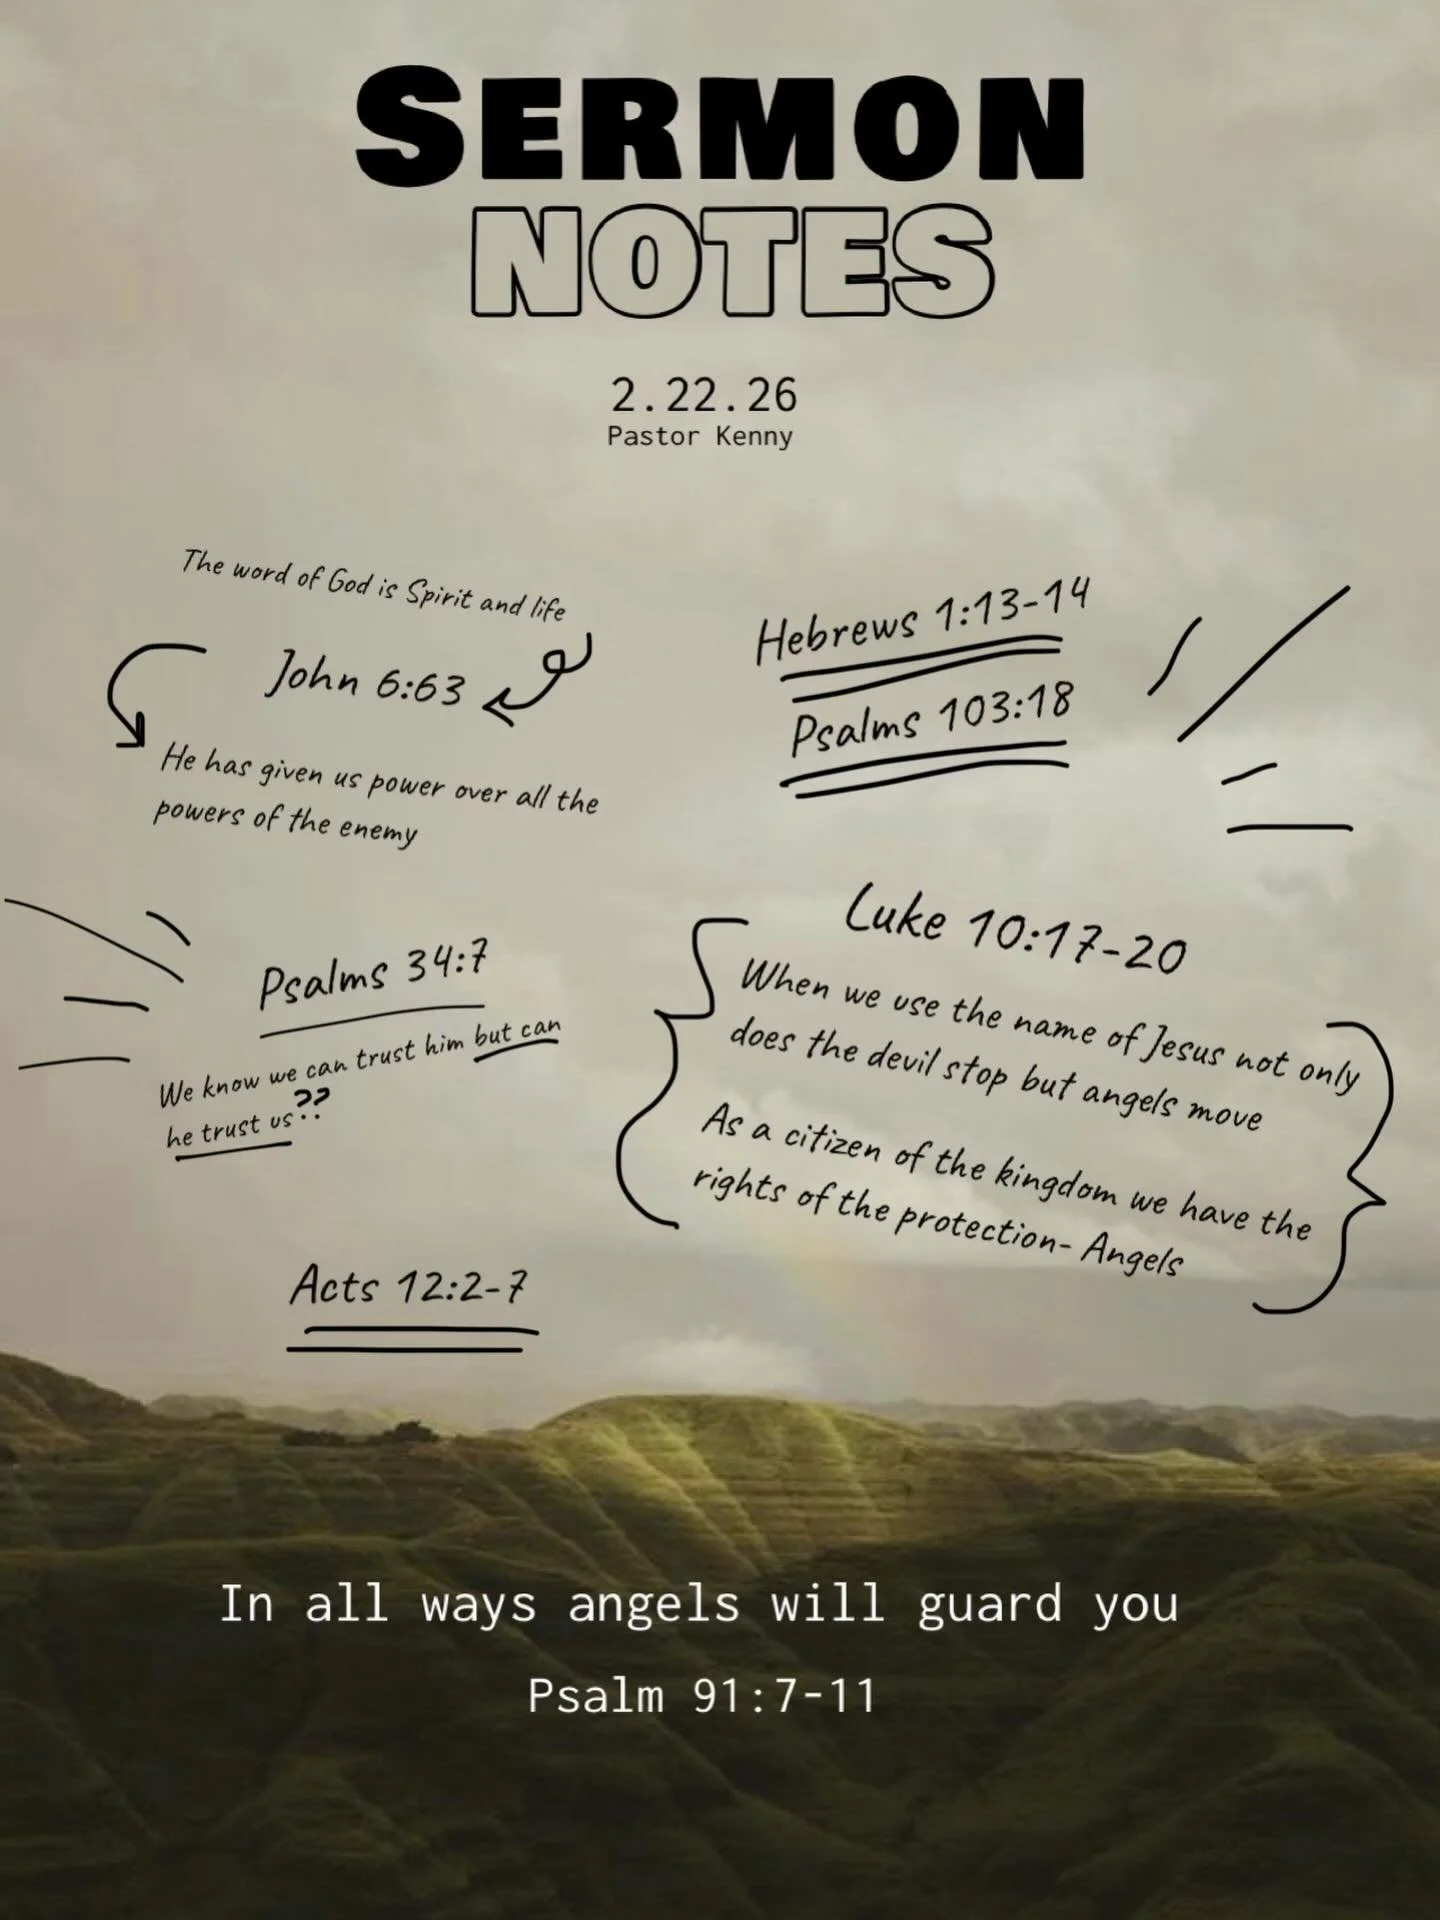 SERMON
NOTES
2.22.26
Pastor Kenny
The word of God is Spirit and life
John 6:63
He has given us power over all the
powers of the enemy
Hebrews 1:13-14
Psalms 103:18
Psalms 34:7
We know we can trust him but can
he trust us??
Luke 10:17-20
When we use the name of Jesus not only
does the devil stop but angels move
As a citizen of the kingdom we have the
rights of the protection- Angels
Acts 12:2-7
In all ways angels will guard you
Psalm 91:7-11